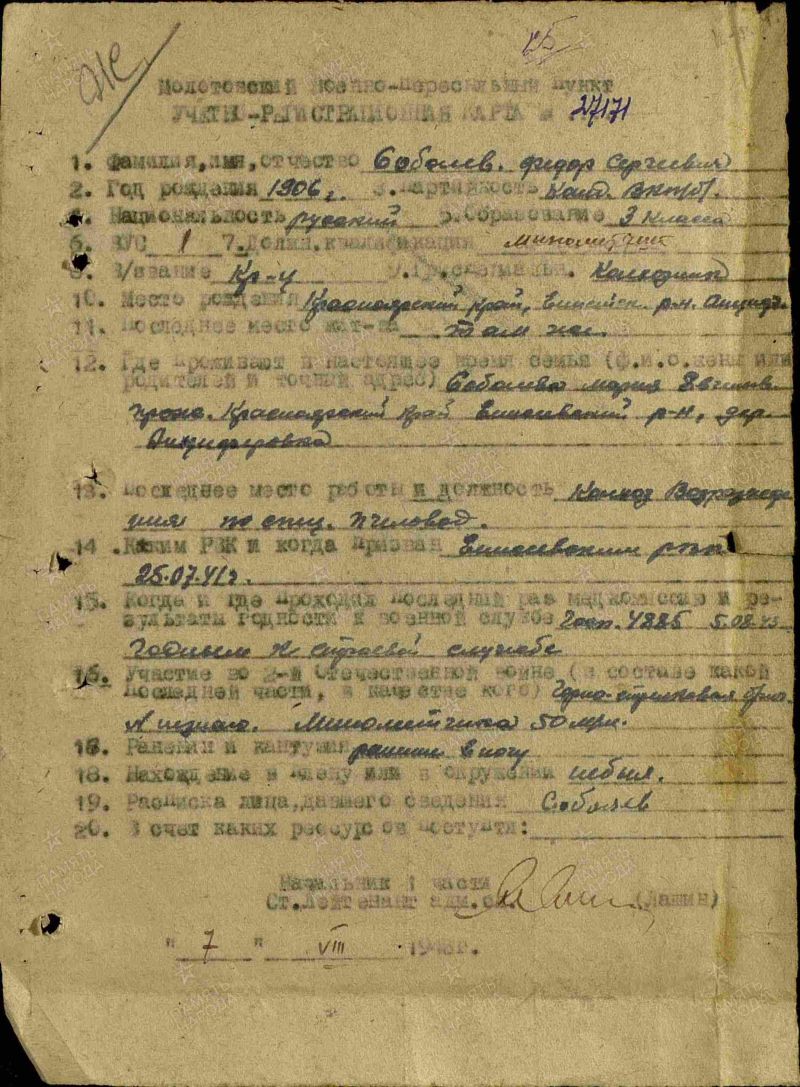 Молотовский Военно-Пересыльный Пункт
УЧЕТНО-РЕГИСТРАЦИОННАЯ КАРТА № 27171
1. Фамилия, имя, отчество Соболев. Федор Сергеевич
2. Год рождения 1906 г. 3. Партийность Канд. ВКП(б).
4. Национальность русский 5. Образование 3 класса
6. В/УС 1 7. Долж. квалификация минометчик
8. В/звание Кр-ц 9. Гр. специальн. Колхозник
10. Место рождения Красноярский край, Енисейск. р-н.
11. Последнее место жит-ва там же.
12. Где проживают в настоящее время семья (ф.и.о. жены или
родителей и точный адрес) Соболева Мария
прож. Красноярский край Енисейский р-н, дер.
Анциферовка
13. Последнее место работы и должность Колхоз Возрожде
ния по спец. Пчеловод.
14. Каким РВК и когда призван Енисейским рвк
25.07.41 г.
15. Когда и где проходил последний раз медкомиссию и ре-
зультаты годности к военной службе Госп. 4885 5.08.43
Годным к строевой службе
16. Участие во 2-й Отечественной войне (в составе какой
последней части, в качестве кого) Горно-стрелковая
Минометчика 50 мм.
17. Ранения и кантузии ранен в ногу
18. Нахождение в плену или в окружении не был.
19. Расписка лица, давшего сведения Соболев
20. В счет каких рессурсов поступил:
Начальник 1 части
Ст. Лейтенант адм. сл. (Лашин)
" 7 " VIII 1943 г.